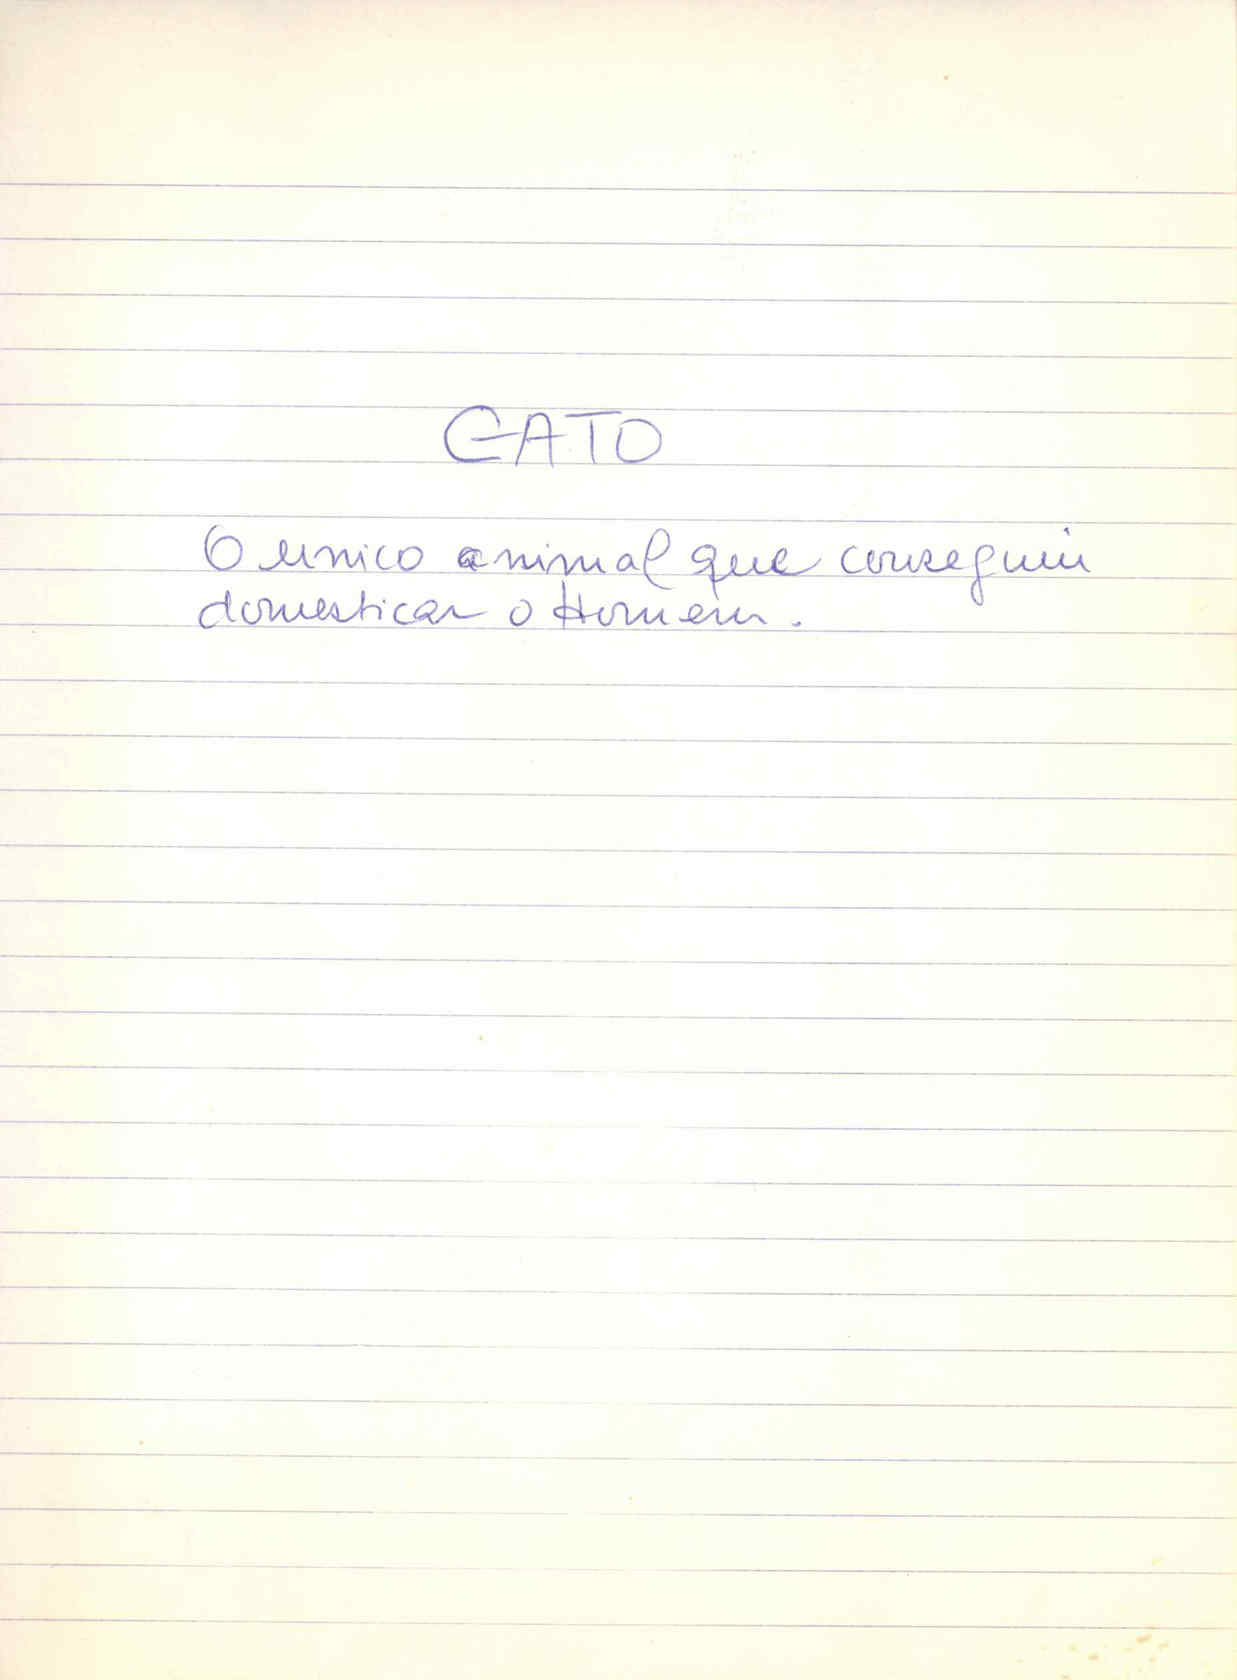 GATO
O unico animal que conseguiu
domesticar o Homem.